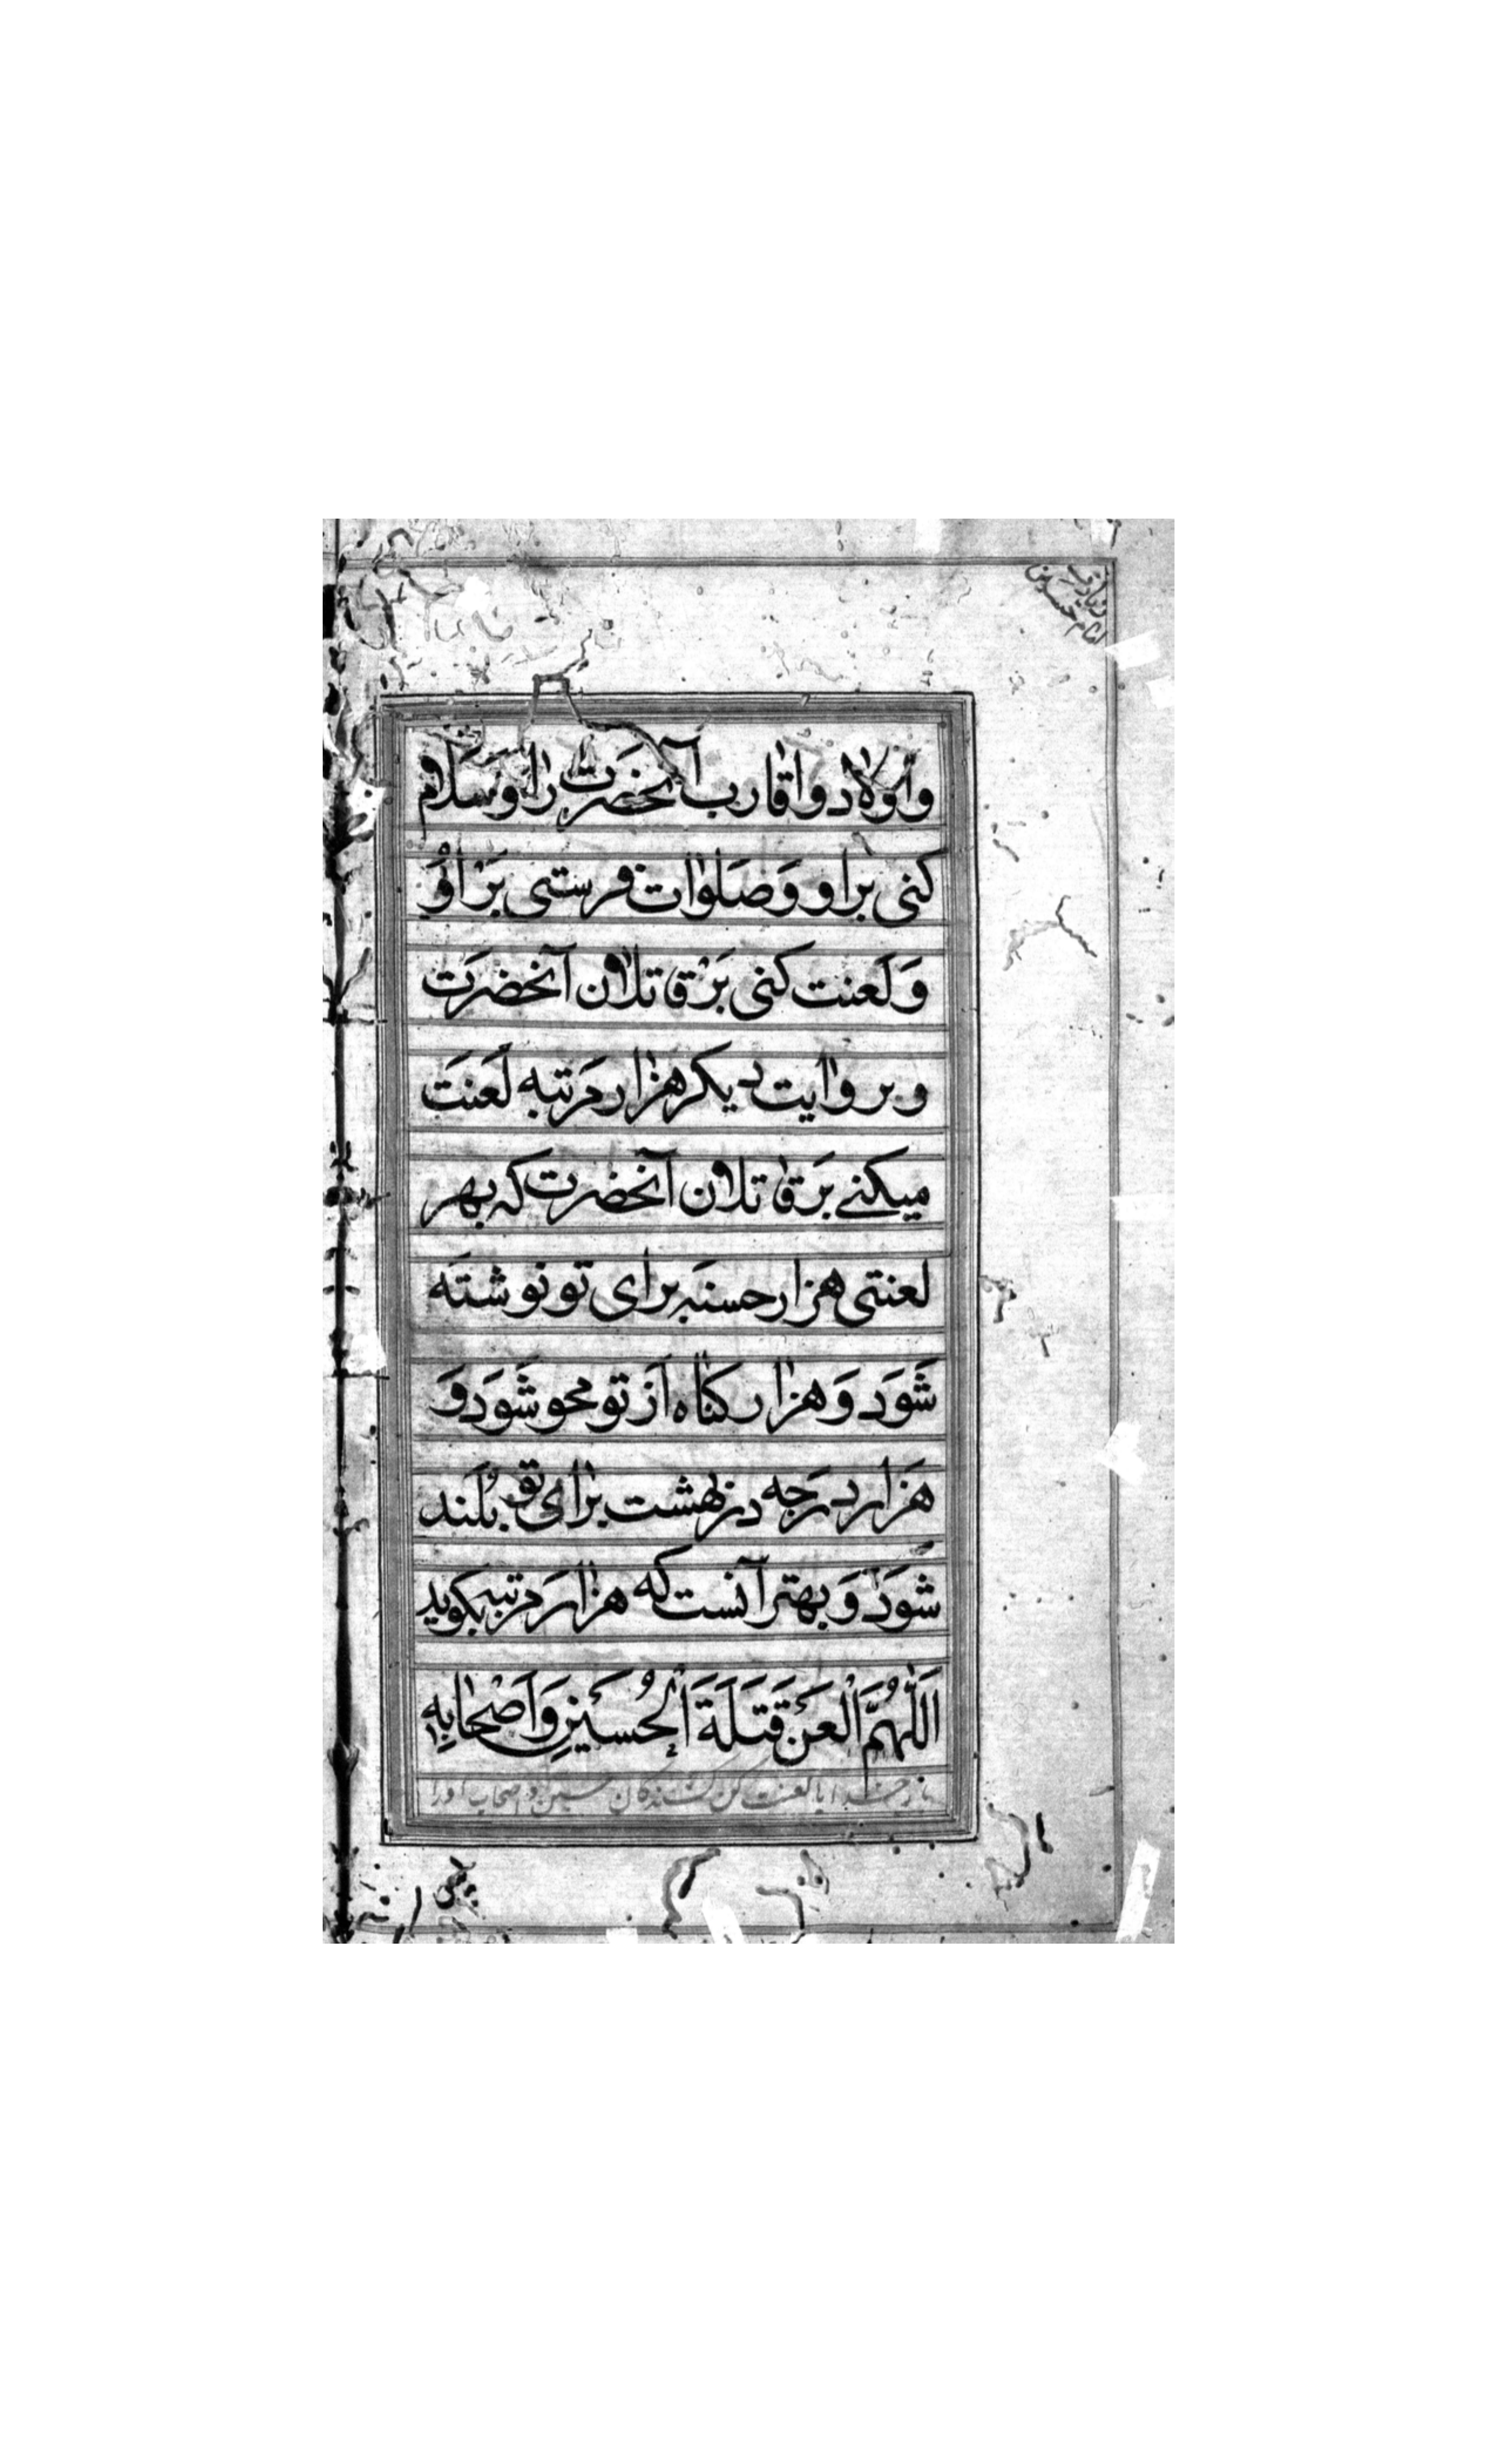 زیارت
امام حسین
واَولاد واقارب آنحضَرت را وسَلام
کنی براو وَصَلوات فرستی بَراوُ
وَلَعنت کنی بَرقاتلان آنحضرَت
و بر وایت دیکر هزار مَرتبه لَعنَت
میکنے بَرقاتلان آنحضرت که بهر
لعنتی هزار حسنه برای تو نوشتَه
شَوَد وَهزار کناه اَز تو محو شَوَد وَ
هَزار دَرَجه در بهشت برای تو بُلَند
شَوَد وَ بهتر آنست که هزار مَرتبه بکوید
اَللّٰهُمَّ الْعَنْ قَتَلَةَ اَلْحُسَیْنِ وَاَصْحٰابِهِ
بار خدایا لعنت کن کشندکان حسین و اصحاب اورا